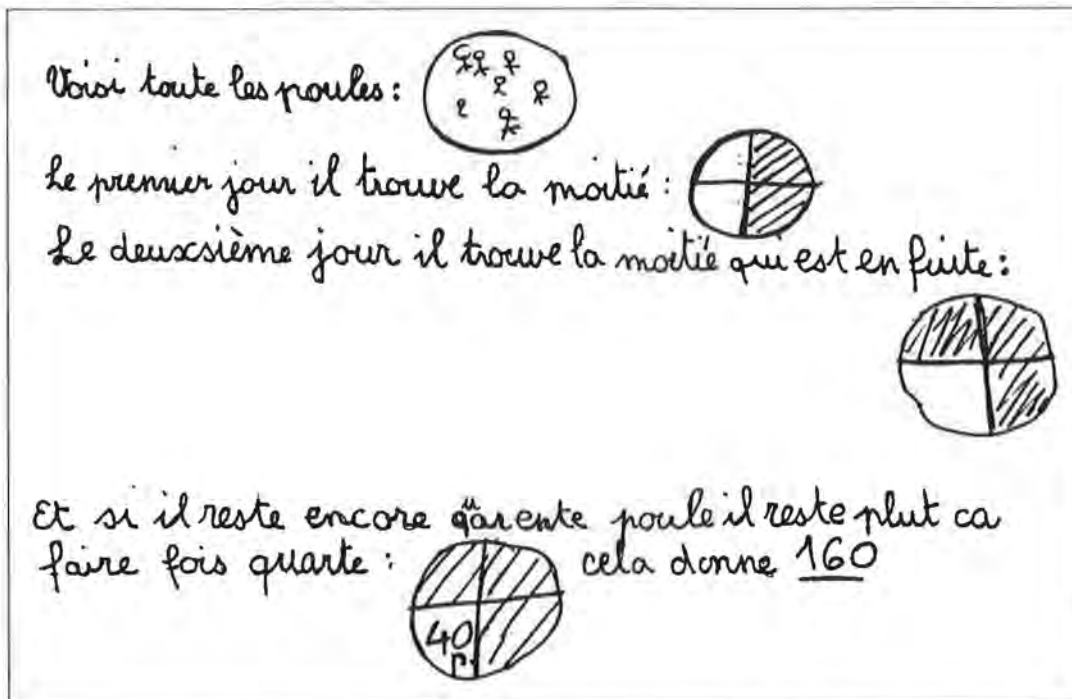 Voici toute les poules :
Le premier jour il trouve la moitié :
Le deuxsième jour il trouve la moitié qui est en fuite :
Et si il reste encore quarente poule il reste plut ca
faire fois quarte : cela donne 160
40
p.